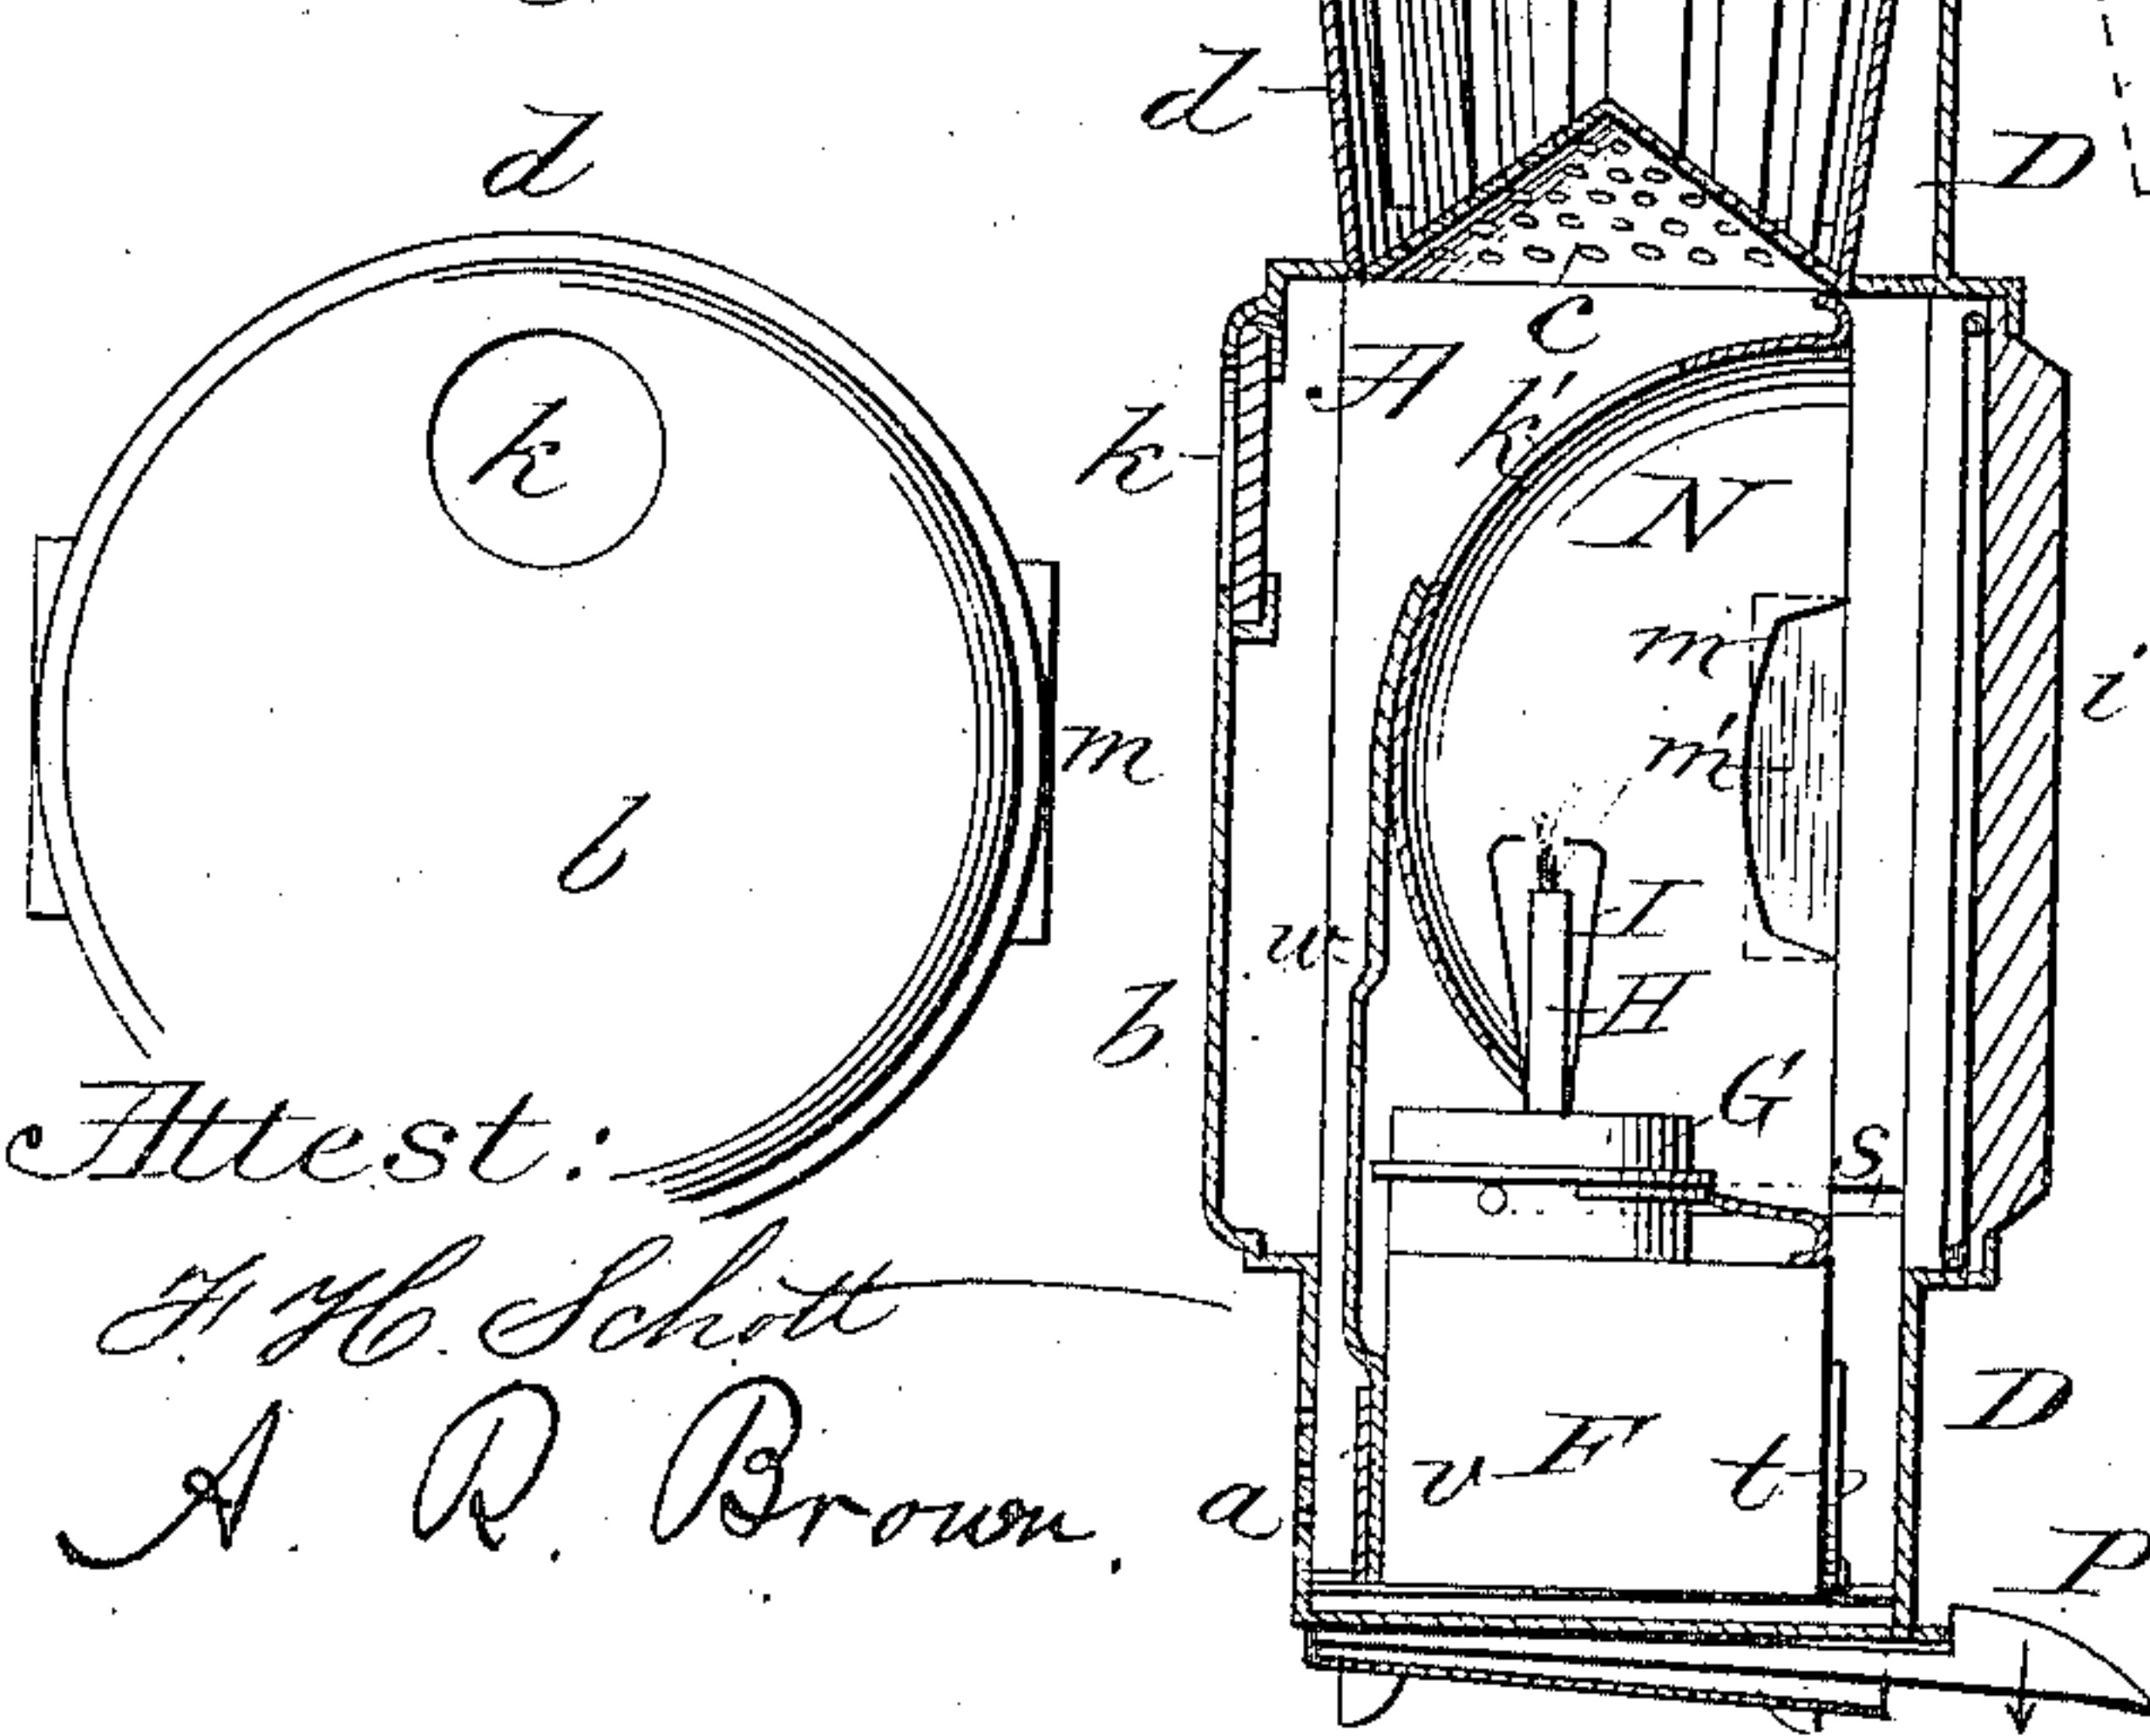 d
k
b
m
Attest:
F. H. Schott
A. R. Brown.
d
D
c
A
k
k'
N
m
m'
i
I
u
H
b
G
s
D
v
F
t
a
P